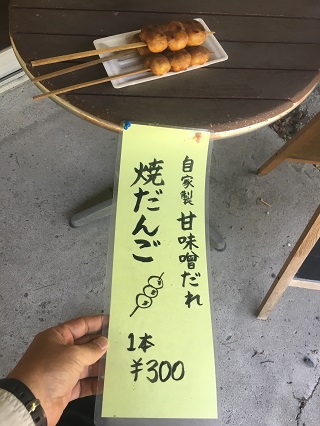 自家製 甘味噌だれ
焼だんご
1本
¥300